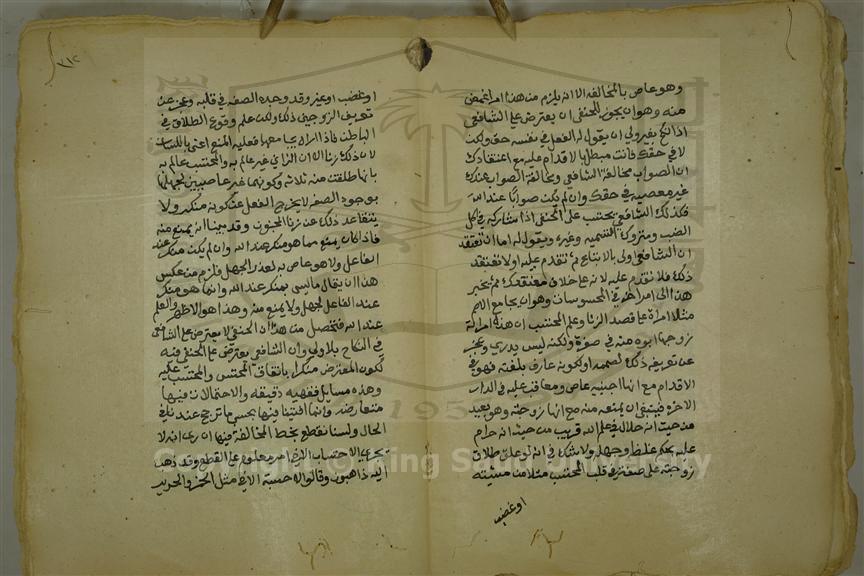 وهو عاص بالمخالفة الا انه يلزم من هذا امر اغمض
منه وهو انه يجوز للحنفي ان يعترض على الشافعي
اذا نكح بغير ولي ان يقول له الفعل في نفسه حق ولكن
لا في حقك فانت مبطل بالاقدام عليه مع اعتقادك
ان الصواب مخالفة الشافعي ومخالفة الصواب عندك
غير معصيه في حقك وان لم يكن صوابا عند الله
فكذلك الشافعي يحتسب على الحنفي اذا شاركه في اكل
الضب ومتروك التسميه وغيره ويقول له اما ان تعتقد
ان الشافعي اولى بالاتباع ثم تقدم عليه او لا تعتقد
ذلك فلا تقدم عليه لانه على خلاف معتقدك ثم ينجر
هذا الى امر اخر في المحسوسات وهو ان يجامع الاصم
مثلا امراة على قصد الزنا وعلم المحتسب ان هذه امراته
زوجها ابوه منه في صغره ولكنه ليس يدري وعجز
عن تعريفه ذلك لصممه او لكونه غير عارف بلغته فهو في
الاقدام مع انها اجنبية عاص ومعاقب عليه في الدار
الاخره فينبغي ان يمنعه منه مع انها زوجته وهو بعيد
من حيث انه حلال في علم الله قريب من حيث انه حرام
عليه بحكم غلطه وجهله ولا شك في انه لو علق طلاق
زوجته على صفة في قلب المحتسب مثلا من مشيئة
او غضب
٧١٢
او غضب او غيره وقد وجدة الصفه في قلبه وعجز عن
تعريف الزوجين ذلك ولكن علم وقوع الطلاق في
الباطن فاذا راه يجامعها فعليه المنع اعني باللسان
لان ذلك زنا الا ان الزاني غير عالم به والمحتسب عالم به
بانها طلقت منه ثلاثه وكونهما غير عاصيين لجهلهما
بوجود الصفه لا يخرج الفعل عن كونه منكر ولا
يتقاعد ذلك عن زنا المجنون وقد بينا انه يمنع منه
فاذا كان يمنع مما هو منكر عند الله وان لم يكن منكر عند
الفاعل ولا هو عاص به لعذر الجهل فلزم من عكس
هذا ان يقال ما ليس بمنكر عند الله وانما هو منكر
عند الفاعل لجهله ولا يمنع منه وهذا هو الاظهر والعلم
عند الله فتحصل من هذا ان الحنفي لا يعترض على الشافعي
في النكاح بلا ولي وان الشافعي يعترض على الحنفي فيه
لكون المعترض منكرا باتفاق المحتسب والمحتسب عليه
وهذه مسايل فقهيه دقيقه والاحتمالات فيها
متعارضه وانما افتينا فيها بحسب ما ترجح عندنا في
الحال ولسنا نقطع بخطا المخالفة فيها ان راى انه لا
يجري الاحتساب الا في امر معلوم على القطع وقد ذهب
اليه ذاهبون وقالوا لا حسبة الا في مثل الخمر والخنزير
Copyright © King Saud University
1957